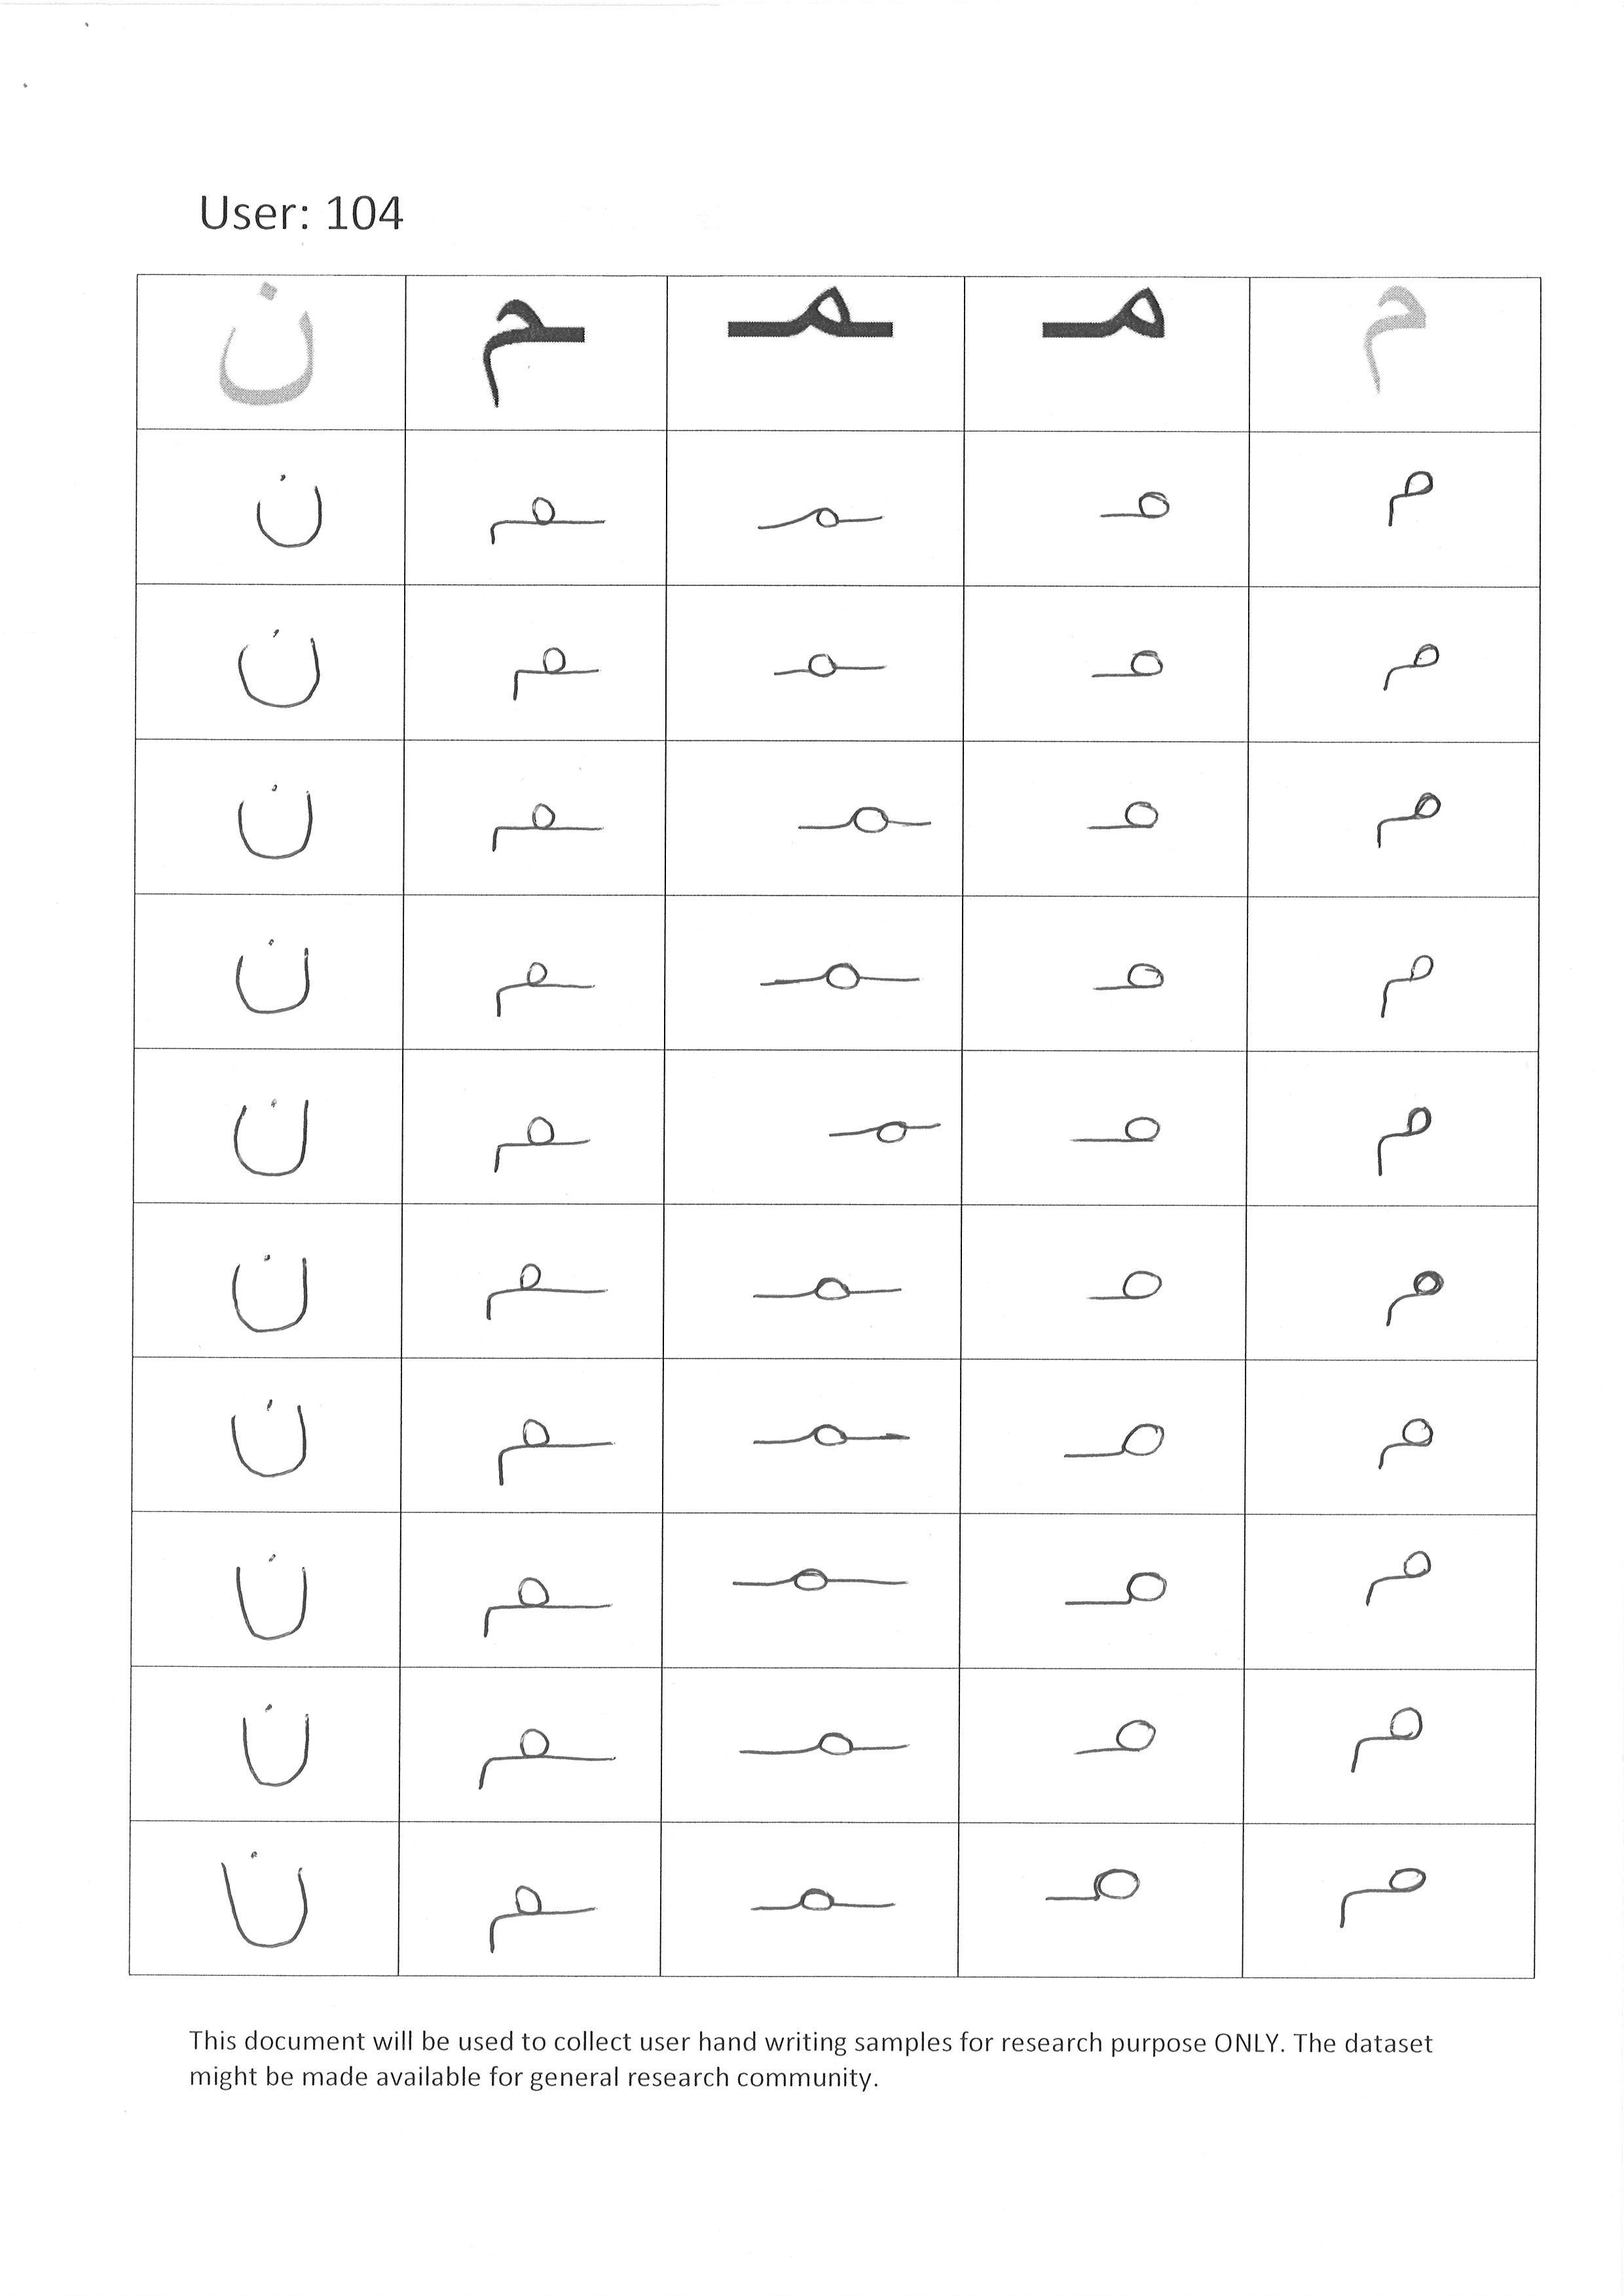 User: 104
م مـ ـمـ ـم ن
م مـ ـمـ ـم ن
م مـ ـمـ ـم ن
م مـ ـمـ ـم ن
م مـ ـمـ ـم ن
م مـ ـمـ ـم ن
م مـ ـمـ ـم ن
م مـ ـمـ ـم ن
م مـ ـمـ ـم ن
م مـ ـمـ ـم ن
م مـ ـمـ ـم ن
This document will be used to collect user hand writing samples for research purpose ONLY. The dataset
might be made available for general research community.